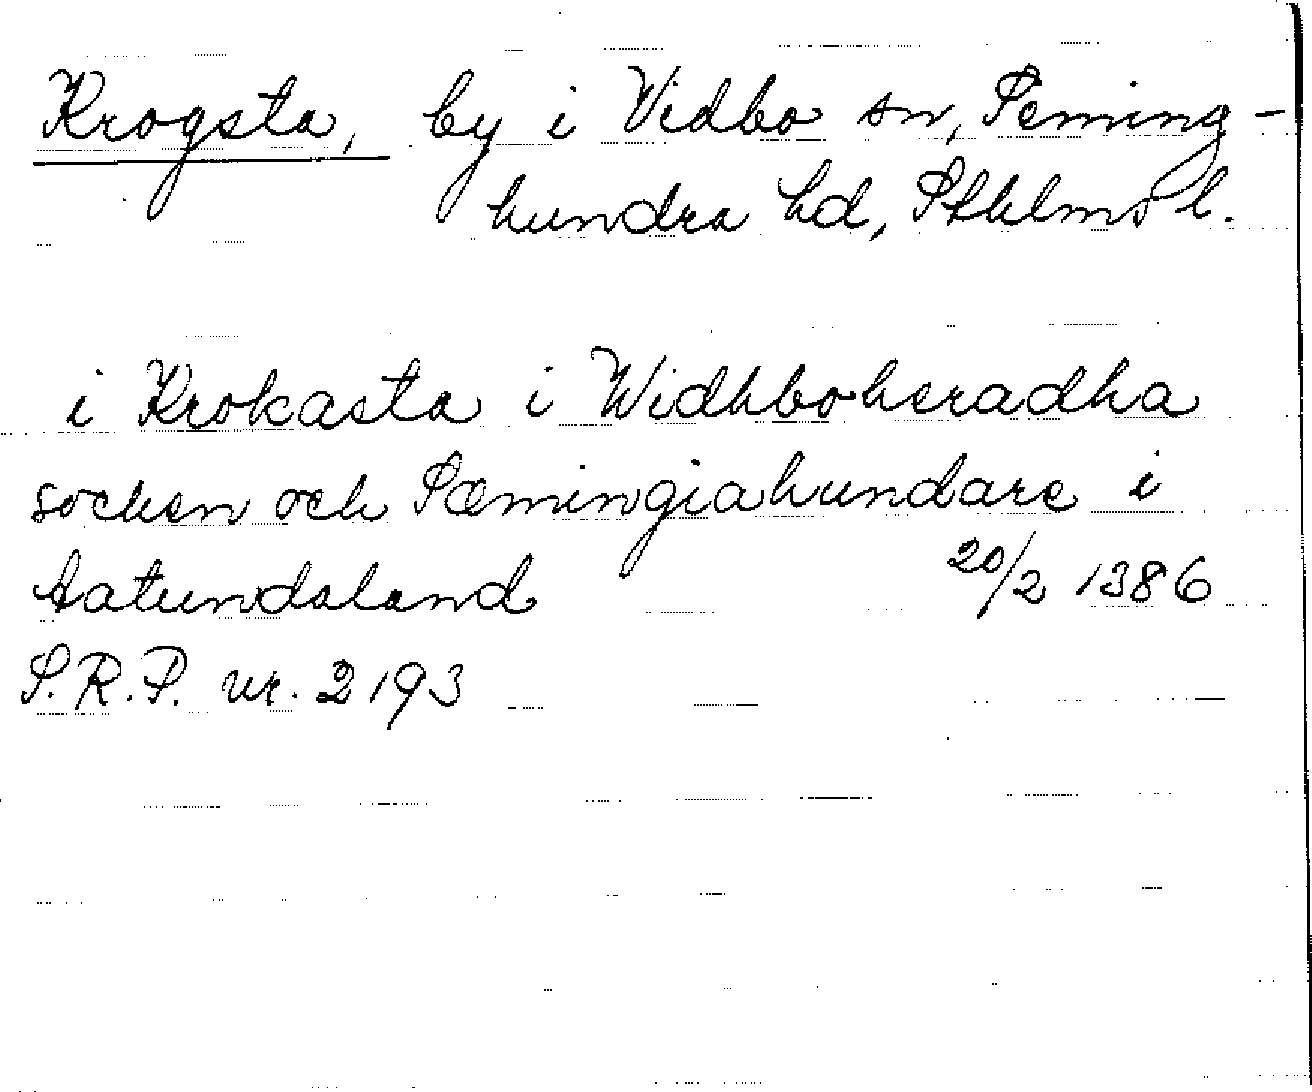 Krogsta, by i Vidbo sn, Seming-
hundra hd, Sthlms l.
i Krokasta i Widhboheradha
socken och Sæmingiahundare i
Aatundaland 20/2 1386
S.R.P. nr. 2193